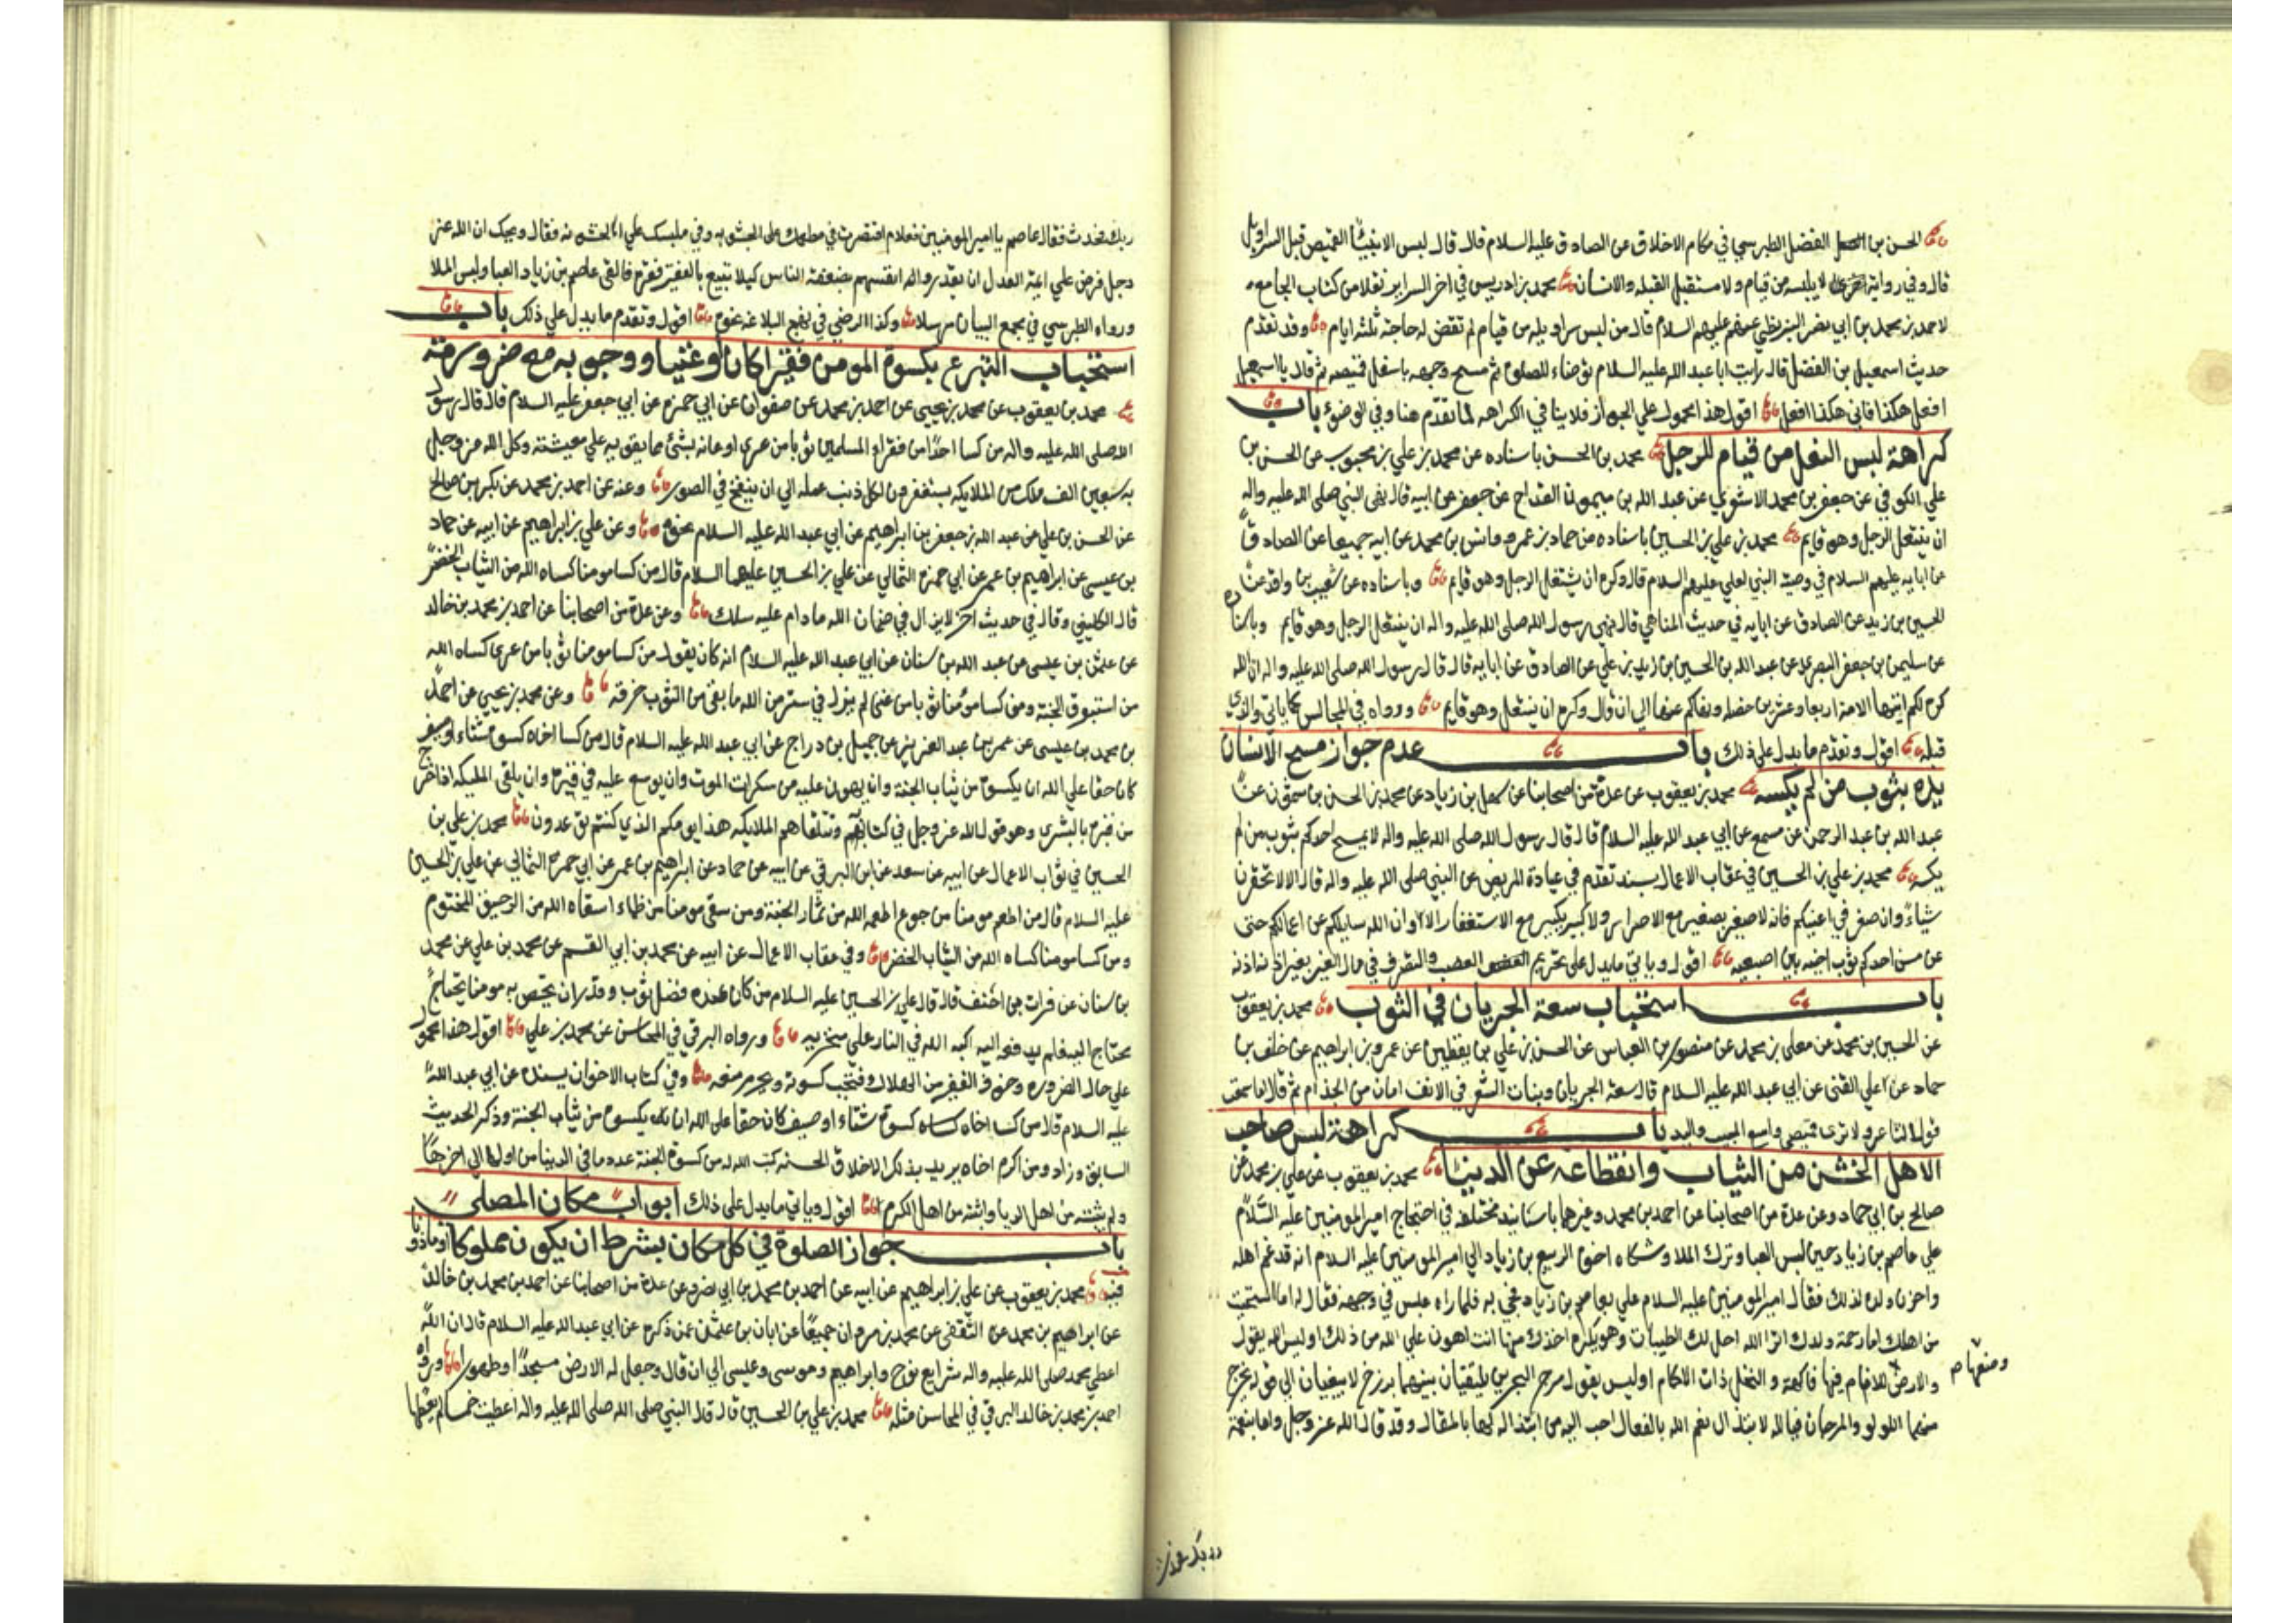 الحسن بن الفضل الطبرسي في مكارم الاخلاق عن الصادق عليه السلام قال قال لبس الانبياء القميص قبل السراويل
قال وفي رواية اخرى لا يلبسه من قيام ولا مستقبل القبلة والانسان محمد بن ادريس في اخر السراير نقلا من كتاب الجامع
لاحمد بن محمد بن ابي نصر البزنطي عنهم عليهم السلام قال من لبس سراويله من قيام لم تقض له حاجته ثلثة ايام وقد تقدم
حديث اسمعيل بن الفضل قال رايت ابا عبد الله عليه السلام توضاء للصلوة ثم مسح وجهه باسفل قميصه ثم قال يا اسمعيل
افعل هكذا فاني هكذا افعل اقول هذا محمول علي الجواز فلا ينافي الكراهه لما تقدم هنا وفي الوضوء باب
كراهة لبس النعل من قيام للرجل محمد بن الحسن باسناده عن محمد بن علي بن محبوب عن الحسن بن
علي الكوفي عن جعفر بن محمد الاشعري عن عبد الله بن ميمون القداح عن جعفر عن ابيه قال نهى النبي صلى الله عليه واله
ان يتنعل الرجل وهو قايم محمد بن علي بن الحسين باسناده عن حماد بن عمرو وانس بن محمد عن ابيه جميعا عن الصادق
عن ابايه عليهم السلام في وصية النبي لعلي عليهم السلام قال وكره ان يتنعل الرجل وهو قايم وباسناده عن شعيب بن واقد عن
الحسين بن زيد عن الصادق عن ابايه في حديث المناهي قال نهى رسول الله صلى الله عليه واله ان يتنعل الرجل وهو قايم وباسناده
عن سليمن بن جعفر البصري عن عبد الله بن الحسين بن زيد بن علي عن الصادق عن ابايه قال قال رسول الله صلى الله عليه واله ان الله
كره لكم ايتها الامة اربعا وعشرين خصلة ونهاكم عنها الي ان قال وكره ان يتنعل وهو قايم ورواه في المجالس كما ياتي والذي
قبله اقول وتقدم ما يدل على ذلك باب عدم جواز مسح الانسان
يده بثوب من لم يكسه محمد بن يعقوب عن عدة من اصحابنا عن سهل بن زياد عن محمد بن الحسن بن شمون عن
عبد الله بن عبد الرحمن عن مسمع عن ابي عبد الله عليه السلام قال قال رسول الله صلى الله عليه واله لا يمسح احدكم بثوب من لم
يكسه محمد بن علي بن الحسين في عقاب الاعمال بسند تقدم في عيادة المريض عن النبي صلى الله عليه واله قال الا لا تحقرن
شياء وان صغر في اعينكم فانه لا صغير بصغير مع الاصرار ولا كبير بكبير مع الاستغفار الا وان الله سايلكم عن اعمالكم حتى
عن مس احدكم ثوب اخيه باصبعيه اقول وياتي ما يدل على تحريم الغصب والتصرف في مال الغير بغير اذنه
باب استحباب سعة الجربان في الثوب محمد بن يعقوب
عن الحسين بن محمد عن معلى بن محمد عن منصور بن العباس عن الحسن بن علي بن يقطين عن عمرو بن ابراهيم عن خلف بن
حماد عن علي القمي عن ابي عبد الله عليه السلام قال سعة الجربان ونبات الشعر في الانف امان من الجذام ثم قال اما سمعت
قول الشاعر ولا ترى قميصي واسع الجيب واليد باب كراهة لبس صاحب
الاهل الخشن من الثياب وانقطاعه عن الدنيا محمد بن يعقوب عن علي بن محمد عن
صالح بن ابي حماد وعن عدة من اصحابنا عن احمد بن محمد وغيرهما باسانيد مختلفة في احتجاج امير المومنين عليه السلام
علي عاصم بن زياد حين لبس العبا وترك الملا وشكاه اخوه الربيع بن زياد الي امير المومنين عليه السلام انه قد غم اهله
واحزن ولده بذلك فقال امير المومنين عليه السلام علي بعاصم بن زياد فجي به فلما راه عبس في وجهه فقال له اما استحييت
من اهلك اما رحمت ولدك اترى الله احل لك الطيبات وهو يكره اخذك منها انت اهون علي الله من ذلك اوليس الله يقول
والارض وضعها للانام فيها فاكهة والنخل ذات الاكمام اوليس يقول مرج البحرين يلتقيان بينهما برزخ لا يبغيان الي قوله يخرج
منهما اللولو والمرجان فبالله لابتذال نعم الله بالفعال احب اليه من ابتذاله لها بالمقال وقد قال الله عز وجل واما بنعمة
ربك فحدث فقال عاصم يا امير المومنين فعلام اقتصرت في مطعمك على الجشوبه وفي ملبسك علي الخشونه فقال ويحك ان الله عز
وجل فرض علي ايمة العدل ان يقدروا انفسهم بضعفة الناس كيلا يتبيغ بالفقير فقره فالقى عاصم بن زياد العبا ولبس الملا
ورواه الطبرسي في مجمع البيان مرسلا وكذا الرضي في نهج البلاغه نحوه اقول وتقدم ما يدل علي ذلك باب
استحباب التبرع بكسوة المومن فقيرا كان او غنيا ووجوبه مع ضرورته
محمد بن يعقوب عن محمد بن يحيى عن احمد بن محمد عن صفوان عن ابي حمزه عن ابي جعفر عليه السلام قال قال رسول
الله صلى الله عليه واله من كسا احدا من فقراء المسلمين ثوبا من عري او اعانه بشئ مما يقوته علي معيشته وكل الله عز وجل
به سبعين الف ملك من الملايكه يستغفرون لكل ذنب عمله الي ان ينفخ في الصور وعنه عن احمد بن محمد عن بكر بن صالح
عن الحسن بن علي عن عبد الله بن جعفر بن ابراهيم عن ابي عبد الله عليه السلام نحوه وعن علي بن ابراهيم عن ابيه عن حماد
بن عيسى عن ابراهيم بن عمر عن ابي حمزه الثمالي عن علي بن الحسين عليهما السلام قال من كسا مومنا كساه الله من الثياب الخضر
قال الكليني وقال في حديث اخر لا يزال في ضمان الله ما دام عليه سلك وعن عدة من اصحابنا عن احمد بن محمد بن خالد
عن عثمن بن عيسى عن عبد الله بن سنان عن ابي عبد الله عليه السلام انه كان يقول من كسا مومنا ثوبا من عرى كساه الله
من استبرق الجنة ومن كسا مومنا ثوبا من غنى لم يزل في ستر من الله ما بقى من الثوب خرقه وعن محمد بن يحيى عن احمد
بن محمد بن عيسى عن عمر بن عبد العزيز عن جميل بن دراج عن ابي عبد الله عليه السلام قال من كسا اخاه كسوة شتاء او صيف
كان حقا علي الله ان يكسوه من ثياب الجنة وان يهون عليه من سكرات الموت وان يوسع عليه في قبره وان يلقى المليكه اذا خرج
من قبره بالبشرى وهو قول الله عز وجل في كتابه وتتلقاهم الملايكه هذا يومكم الذي كنتم توعدون محمد بن علي بن
الحسين في ثواب الاعمال عن ابيه عن سعد عن ابن البرقي عن ابيه عن حماد عن ابراهيم بن عمر عن ابي حمزه الثمالي عن علي بن الحسين
عليه السلام قال من اطعم مومنا من جوع اطعمه الله من ثمار الجنة ومن سقى مومنا من ظماء اسقاه الله من الرحيق المختوم
ومن كسا مومنا كساه الله من الثياب الخضر وفي عقاب الاعمال عن ابيه عن محمد بن ابي القسم عن محمد بن علي عن محمد
بن سنان عن فرات بن احنف قال قال علي بن الحسين عليه السلام من كان عنده فضل ثوب وقدر ان يخص به مومنا يحتاج
يحتاج اليه فلم يدفعه اليه اكبه الله في النار علي منخريه ورواه البرقي في المحاسن عن محمد بن علي اقول هذا محمول
علي حال الضروره وخوف الفقير من الهلاك فتجب كسوته ويحرم منعه وفي كتاب الاخوان بسنده عن ابي عبد الله
عليه السلام قال من كسا اخاه كسوة شتاء او صيف كان حقا على الله ان يكسوه من ثياب الجنة وذكر الحديث
السابق وزاد ومن اكرم اخاه يريد بذلك الاخلاق الحسنه كتب الله له من كسوة الجنة عدد ما في الدنيا من اولها الي اخرها
ولم يثبته من اهل الريا واثبته من اهل الكرم اقول وياتي ما يدل على ذلك ابواب مكان المصلي
باب جواز الصلوة في كل مكان بشرط ان يكون مملوكا او ماذونا
فيه محمد بن يعقوب عن علي بن ابراهيم عن ابيه عن احمد بن محمد بن ابي نصر وعن عدة من اصحابنا عن احمد بن محمد بن خالد
عن ابراهيم بن محمد الثقفي عن محمد بن مروان جميعا عن ابان بن عثمن عمن ذكره عن ابي عبد الله عليه السلام قال ان الله
اعطى محمد صلى الله عليه واله شرايع نوح وابراهيم وموسى وعيسى الي ان قال وجعل له الارض مسجدا وطهورا ورواه
احمد بن محمد بن خالد البرقي في المحاسن مثله محمد بن علي بن الحسين قال قال النبي صلى الله عليه واله اعطيت خمسا لم يعطها